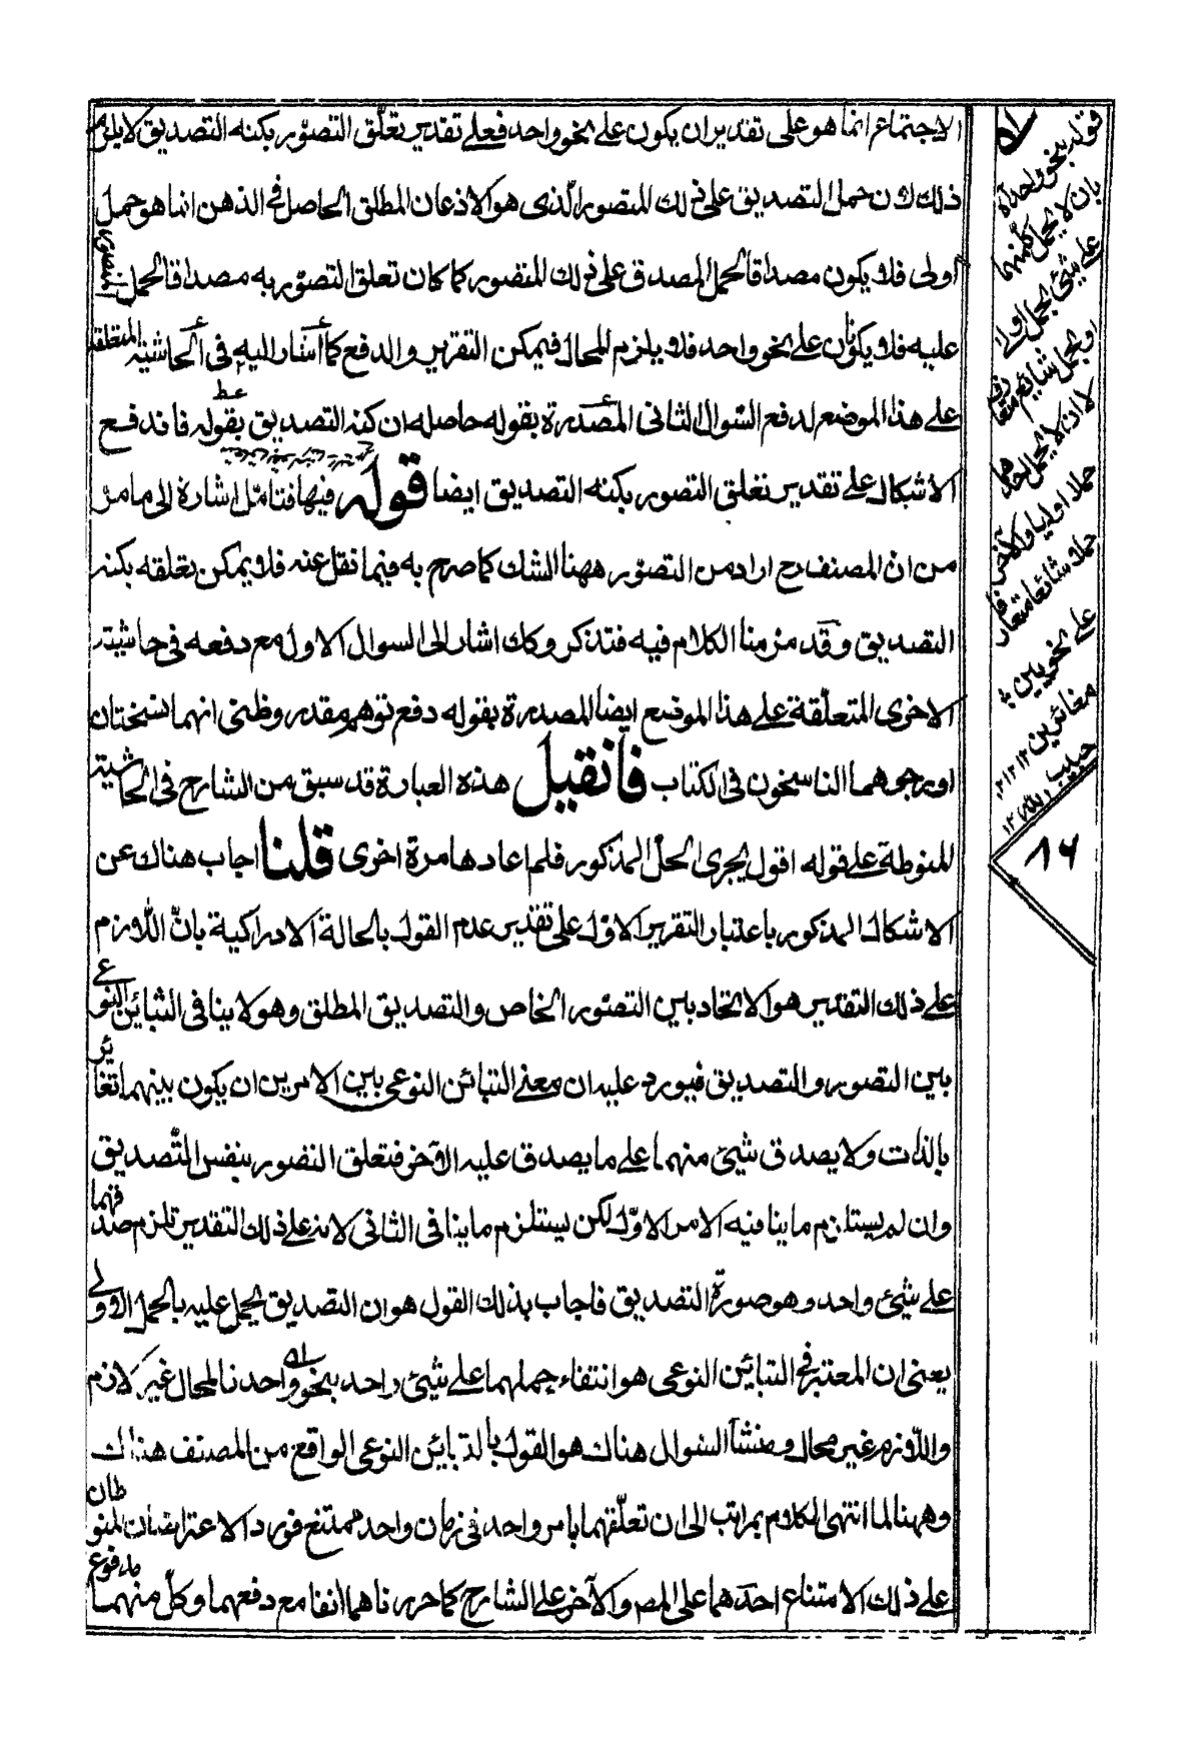 الاجتماع انما هو على تقدير ان يكون على نحو واحد فعلى تقدير تعلّق التصوّر بكنه التصديق لا يلزم
ذلك لان حمل التصديق على ذلك المتصور الّذى هو الاذعان المطلق الحاصل فى الذهن انما هو حمل
اولى فلا يكون مصداقا لحمل المصدق على ذلك المتصور كما كان تعلق التصوّر به مصداقا لحمل التصوّر
عليه فلا يكونان على نحو واحد فلا يلزم المحال فيمكن التقرير والدفع كما أشار اليه فى الحاشية المتعلقة
على هذا الموضع لدفع السّوال الثانى المصدرة بقوله حاصله ان كنه التصديق بقوله فاندفع
الاشكال على تقدير تعلق التصور بكنه التصديق ايضا قوله فيها فتامّل اشارة الى ما مرّ
من ان المصنف رح اراد من التصوّر ههنا الشك كما صرح به فيما نقل عنه فلا يمكن تعلقه بكنه
التصديق وقد مرّ منا الكلام فيه فتذكر وكك اشار الى السوال الاول مع دفعه فى حاشيته
الاخرى المتعلّقة على هذا الموضع ايضا المصدرة بقوله دفع توهم مقدر وظنى انهما نسختان
اورجوهما الناسخون فى الكتاب فان قيل هذه العبارة قد سبق من الشارح فى الحاشية
المنوطة على قوله اقول يجرى الحلّ المذكور فلم اعادها مرة اخرى قلنا اجاب هناك عن
الاشكال المذكور باعتبار التقرير الاوّل على تقدير عدم القول بالحالة الادراكية بانّ اللازم
على ذلك التقدير هو الاتحاد بين التصوّر الخاص والتصديق المطلق وهو لا ينافى التبائن النوعى
بين التصور والتصديق فيورد عليه ان معنى التبائن النوعى بين الامرين ان يكون بينهما تغائر
بالذات ولا يصدق شيئ منهما على ما يصدق عليه الآخر فتعلق التصور بنفس التّصديق
وان لم يستلزم ما ينافيه الامر الاوّل لكن يستلزم ما ينافى الثانى لانه على ذلك التقدير تلزم صدقهما
على شيئ واحد وهو صورة التصديق فاجاب بذلك القول هو ان التصديق يحمل عليه بالحمل الاولى
يعنى ان المعتبر فى التبائن النوعى هو انتفاء حملهما على شيئ واحد بنحو واحد فالمحال غير لازم
واللازم غير محال ومنشأ السّوال هناك هو القول بالتبائن النوعى الواقع من المصنف هناك
وههنا لما انتهى الكلام بمراتب الى ان تعلّقهما بامر واحد فى زمان واحد ممتنع فورد الاعتراضان المنوطان
على ذلك الامتناع احدهما على المص والآخر على الشارح كما حررناهما انفا مع دفعهما وكلّ منهما مدفوع
قوله بنحو واحد آه
بان لا يحمل كل منهما
على شيئ بحمل اولى
او بحمل شائع متعارف
لا ان لا يحمل احدهما
حملا اوليا والآخر
حملا شائعا متعارفا
على نحوين
مغائرين ١٢
حبيب الله ١٢
١٦